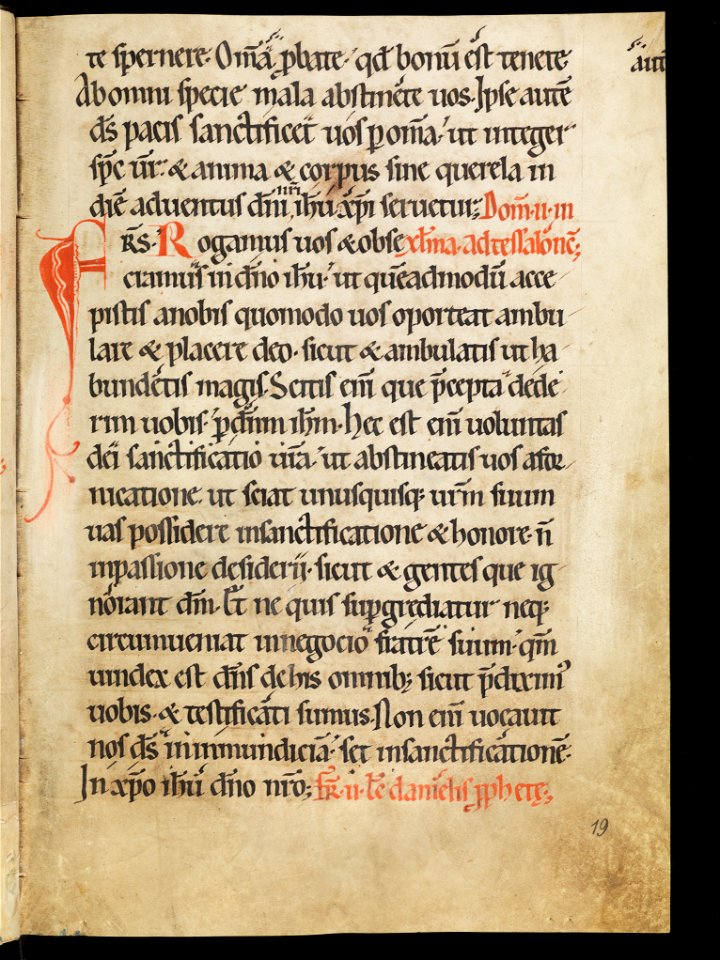 te spernere. Om̄a p̱bate. qd̄ bonū est tenete.
autē
Ab omni specie mala abstinete uos. Ipse autē
ds̄ pacis sanctificet uos p̱ om̄a. ut integer
sps̄ ur̄. & anima & corpus sine querela in
diē aduentus dn̄i nr̄i ih̄u xp̄i seruetur; Dom̄. ii. in
Fr̄s. Rogamus uos & obse xl̄ma. ad tessalonc̄;
cramus in dn̄o ih̄u. ut quēadmodū acce
pistis a nobis quomodo uos oporteat ambu
lare & placere deo. sicut & ambulatis ut ha
bundetis magis. Scitis eni̅ que p̄cepta dede
rim uobis. p̱ dn̄m ih̄m. Hec est eni̅ uoluntas
dei sanctificatio ur̄a. ut abstineatis uos a for
nicatione. ut sciat unusquisq; ur̄m suum
uas possidere in sanctificatione & honore. n̄
in passione desiderii. sicut & gentes que ig
norant dm̄. Et ne quis sup̱grediatur neq;
circumueniat in negocio fratrē suum. qm̄
uindex est dn̄s de his omnib; sicut p̄dixim᾽
uobis. & testificati sumus. Non eni̅ uocauit
nos ds̄ in inmundiciā. set in sanctificationē.
In xp̄o ih̄u dn̄o nr̄o; fr̄. ii. l̄c̄ danielis p̱phetę;
19